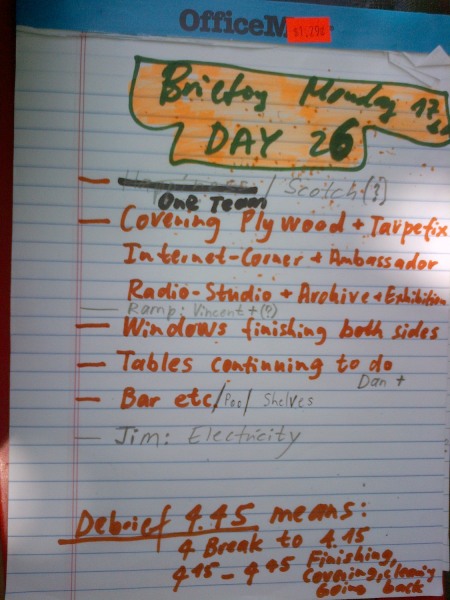 OfficeM
$1.29¢
Briefing Monday 17
DAY 26
— / Scotch(?)
One Team
— Covering Plywood + Tarpefix
Internet-Corner + Ambassador
Radio-Studio + Archive + Exhibition
— Ramp: Vincent + (?)
— Windows finishing both sides
— Tables continuing to do
Dan +
— Bar etc/Poo/ Shelves
— Jim: Electricity
Debrief 4.45 means:
4 Break to 4.15
4.15 - 4.45 Finishing,
Covering, cleaning
Going back